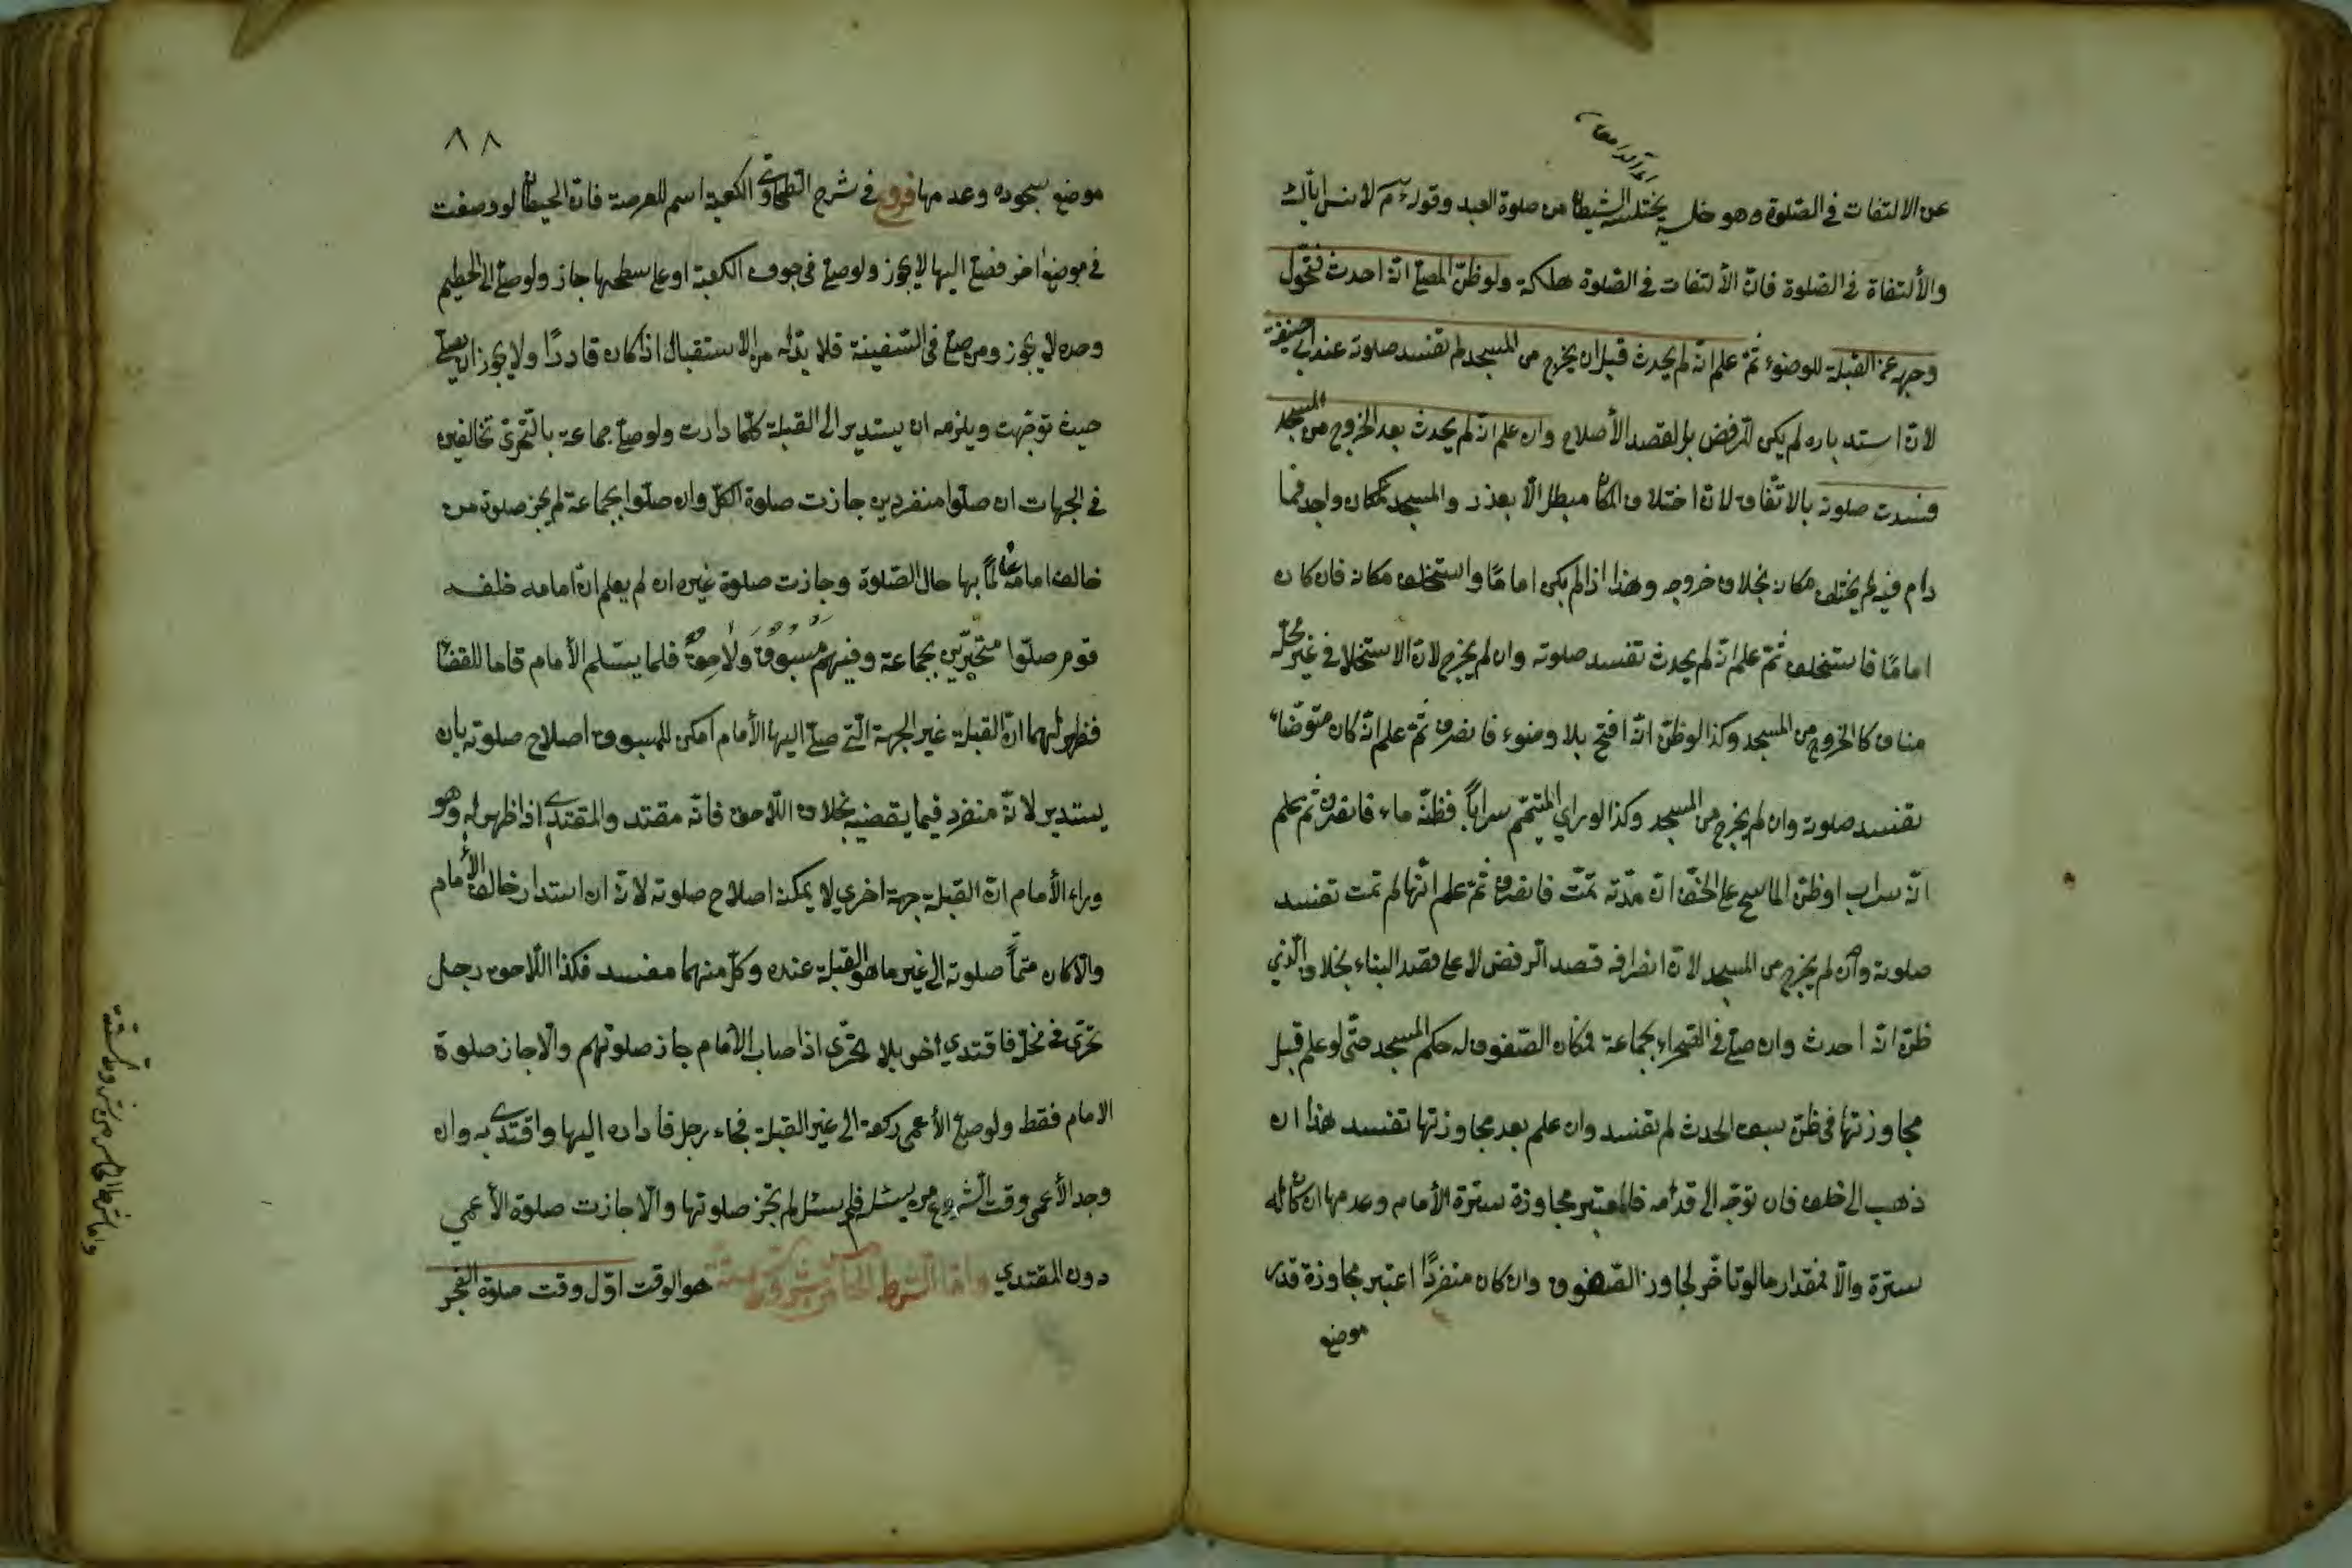 عن الالتفات فى الصّلوة وهو خلسة يختلسه الشيطان من صلوة العبد وقوله عم لانس ايّاك
والألتفاة فى الصّلوة فانّ الألتفات فى الصّلوة هلكة ولو ظنّ المصلّى انّه احدث فتحّول
وجهه عن القبلة للوضوء ثمّ علم انّه لم يحدث قبل ان يخرج من المسجد لم تفسد صلوته عند ابى حنيفة
لانّ استدباره لم يكن للرّفض بل لقصد الأصلاح وان علم انّه لم يحدث بعد الخروج من المسجد
فسدت صلوته بالاتّفاق لانّ اختلاف المكان مبطل الّا بعذر والمسجد كمكان واحد فما
دام فيه لم يختلف مكانه بخلاف خروجه وهذا اذا لم يكن امامًا واستخلف مكانه فان كان
امامًا فاستخلف ثمّ علم انّه لم يحدث تفسد صلوته وان لم يخرج لانّ الاستخلاف فى غير محلّه
مناف كالخروج من المسجد وكذا لو ظنّ انّه افتتح بلا وضوء فانصرف ثمّ علم انّه كان متوضّاء
تفسد صلوته وان لم يخرج من المسجد وكذا لو راى المتيمّم سرابًا فظنّه ماء فانصرف ثم علم
انّه سراب او ظنّ الماسح على الخفّ انّ مدّته تمّت فانصرف ثمّ علم انّها لم تمت تفسد
صلوته وان لم يخرج من المسجد لانّ انصرافه قصد الرّفض لا على قصد البناء بخلاف الّذى
ظنّ انّه احدث وان صلّى فى الصّحراء بجماعة فمكان الصّفوف له حكم المسجد حتّى لو علم قبل
مجاوزتها فى ظنّ سبق الحدث لم تفسد وان علم بعد مجاوزتها تفسد هذا ان
ذهب الى خلف فان توجّه الى قدّامه فالمعتبر مجاوزة سترة الأمام وعدمها ان كان له
سترة والّا فمقدار ما لو تاخّر لجاوز الصّفوف وان كان منفردًا اعتبر مجاوزة قدر
موضع
٨٨
موضع سجوده وعدمها فروع فى شرح الطحاوى الكعبة اسم للعرصة فانّ الحيطان لو وضعت
فى موضع اخر فصلّى اليها لا يجوز ولو صلّى فى جوف الكعبة او على سطحها جاز ولو صلّى الى الحطيم
وحده لا يجوز ومن صلّى فى السّفينة فلا بدّ له من الاستقبال اذا كان قادرًا ولا يجوز ان يصلّى
حيث توجّهت ويلزمه ان يستدير الى القبلة كلّما دارت ولو صلّى جماعة بالتّحرّى تخالفين
فى الجهات ان صلّوا منفردين جازت صلوة الكلّ وان صلّوا بجماعة لم يجز صلوة من
خالف امامه عالمًا بها حال الصّلوة وجازت صلوة غيره ان لم يعلم انّ امامه خلفه
قوم صلّوا متحرّين بجماعة وفيهم مسبوق ولاحق فلما يسلم الأمام قاما للقضاء
فظهر لهما انّ القبلة غير الجهة الّتى صلّى اليها الأمام امكن للمسبوق اصلاح صلوته بان
يستدير لانّه منفرد فيما يقضيه بخلاف اللّاحق فانّه مقتد والمقتدى اذا ظهر له وهو
وراء الأمام انّ القبلة جهة اخرى لا يمكنه اصلاح صلوته لانّه ان استدار خالف الأمام
والّا كان متمّاً صلوته الى غير ما هو القبلة عنده وكلّ منهما مفسد فكذا اللّاحق رجل
تحرّى فى محلّ فاقتدى اخر بلا تحرّى اذا صاب الأمام جاز صلوتهم والّا جاز صلوة
الامام فقط ولو صلّى الأعمى ركعة الى غير القبلة فجاء رجل فاداره اليها واقتدى به وان
وجد الأعمى وقت الشّروع من يسئله فلم يسئل لم تجز صلوتها والّا جازت صلوة الأعمى
دون المقتدى وامّا الشّرط الخامس هو الوقت اوّل وقت صلوة الفجر